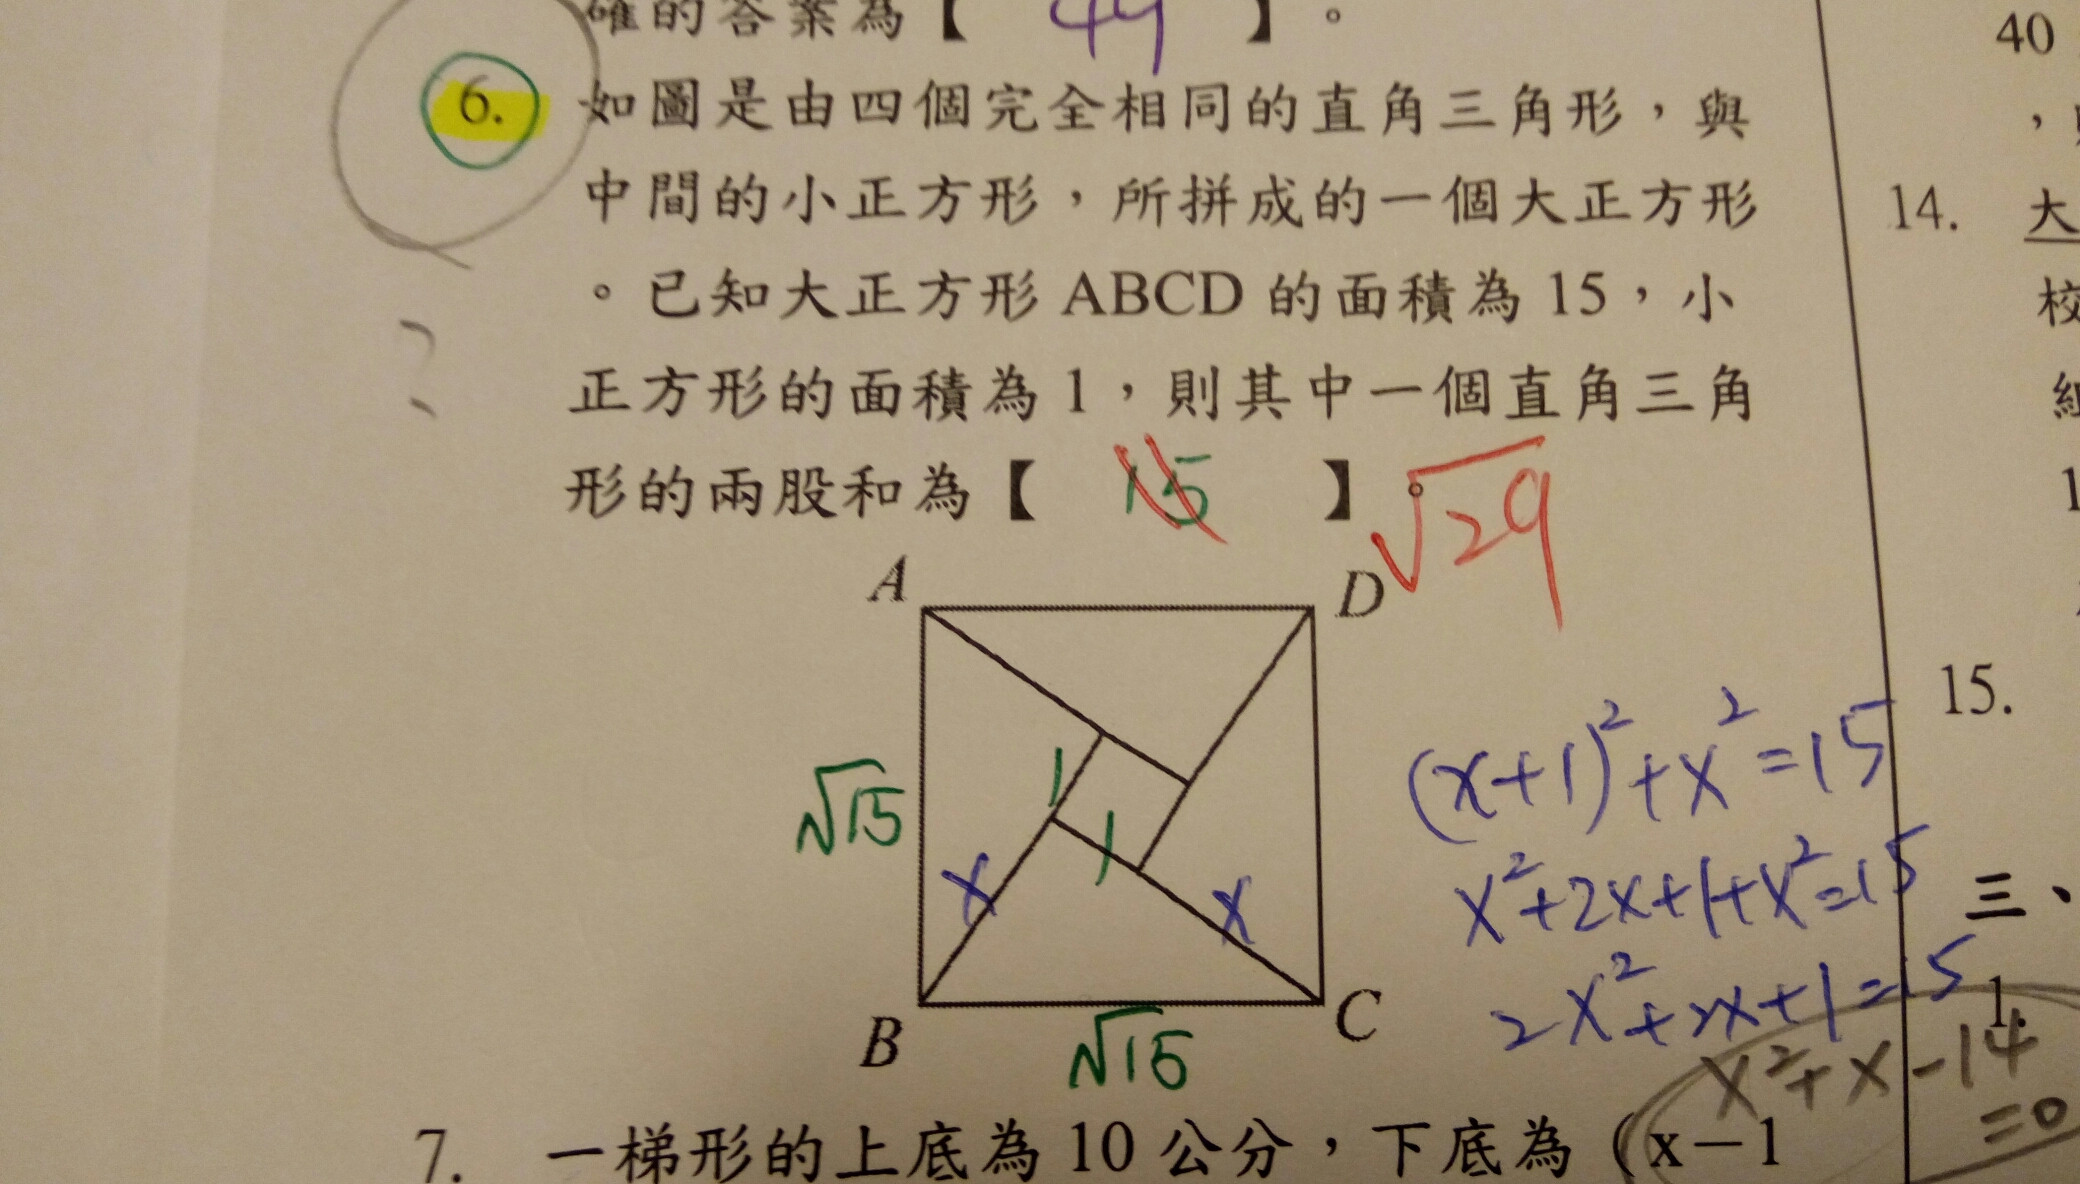 確的答案為【 49 】。
6. 如圖是由四個完全相同的直角三角形，與
中間的小正方形，所拼成的一個大正方形
。已知大正方形 ABCD 的面積為 15，小
正方形的面積為 1，則其中一個直角三角
形的兩股和為【 15 】。 √29
?
A
D
√15
1
1
x
x
B
C
√15
(x+1)²+x²=15
x²+2x+1+x²=15
2x²+2x+1=15
x²+x-14
=0
7. 一梯形的上底為 10 公分，下底為 (x－1
40
，
14. 大
校
1
15.
三、
1.